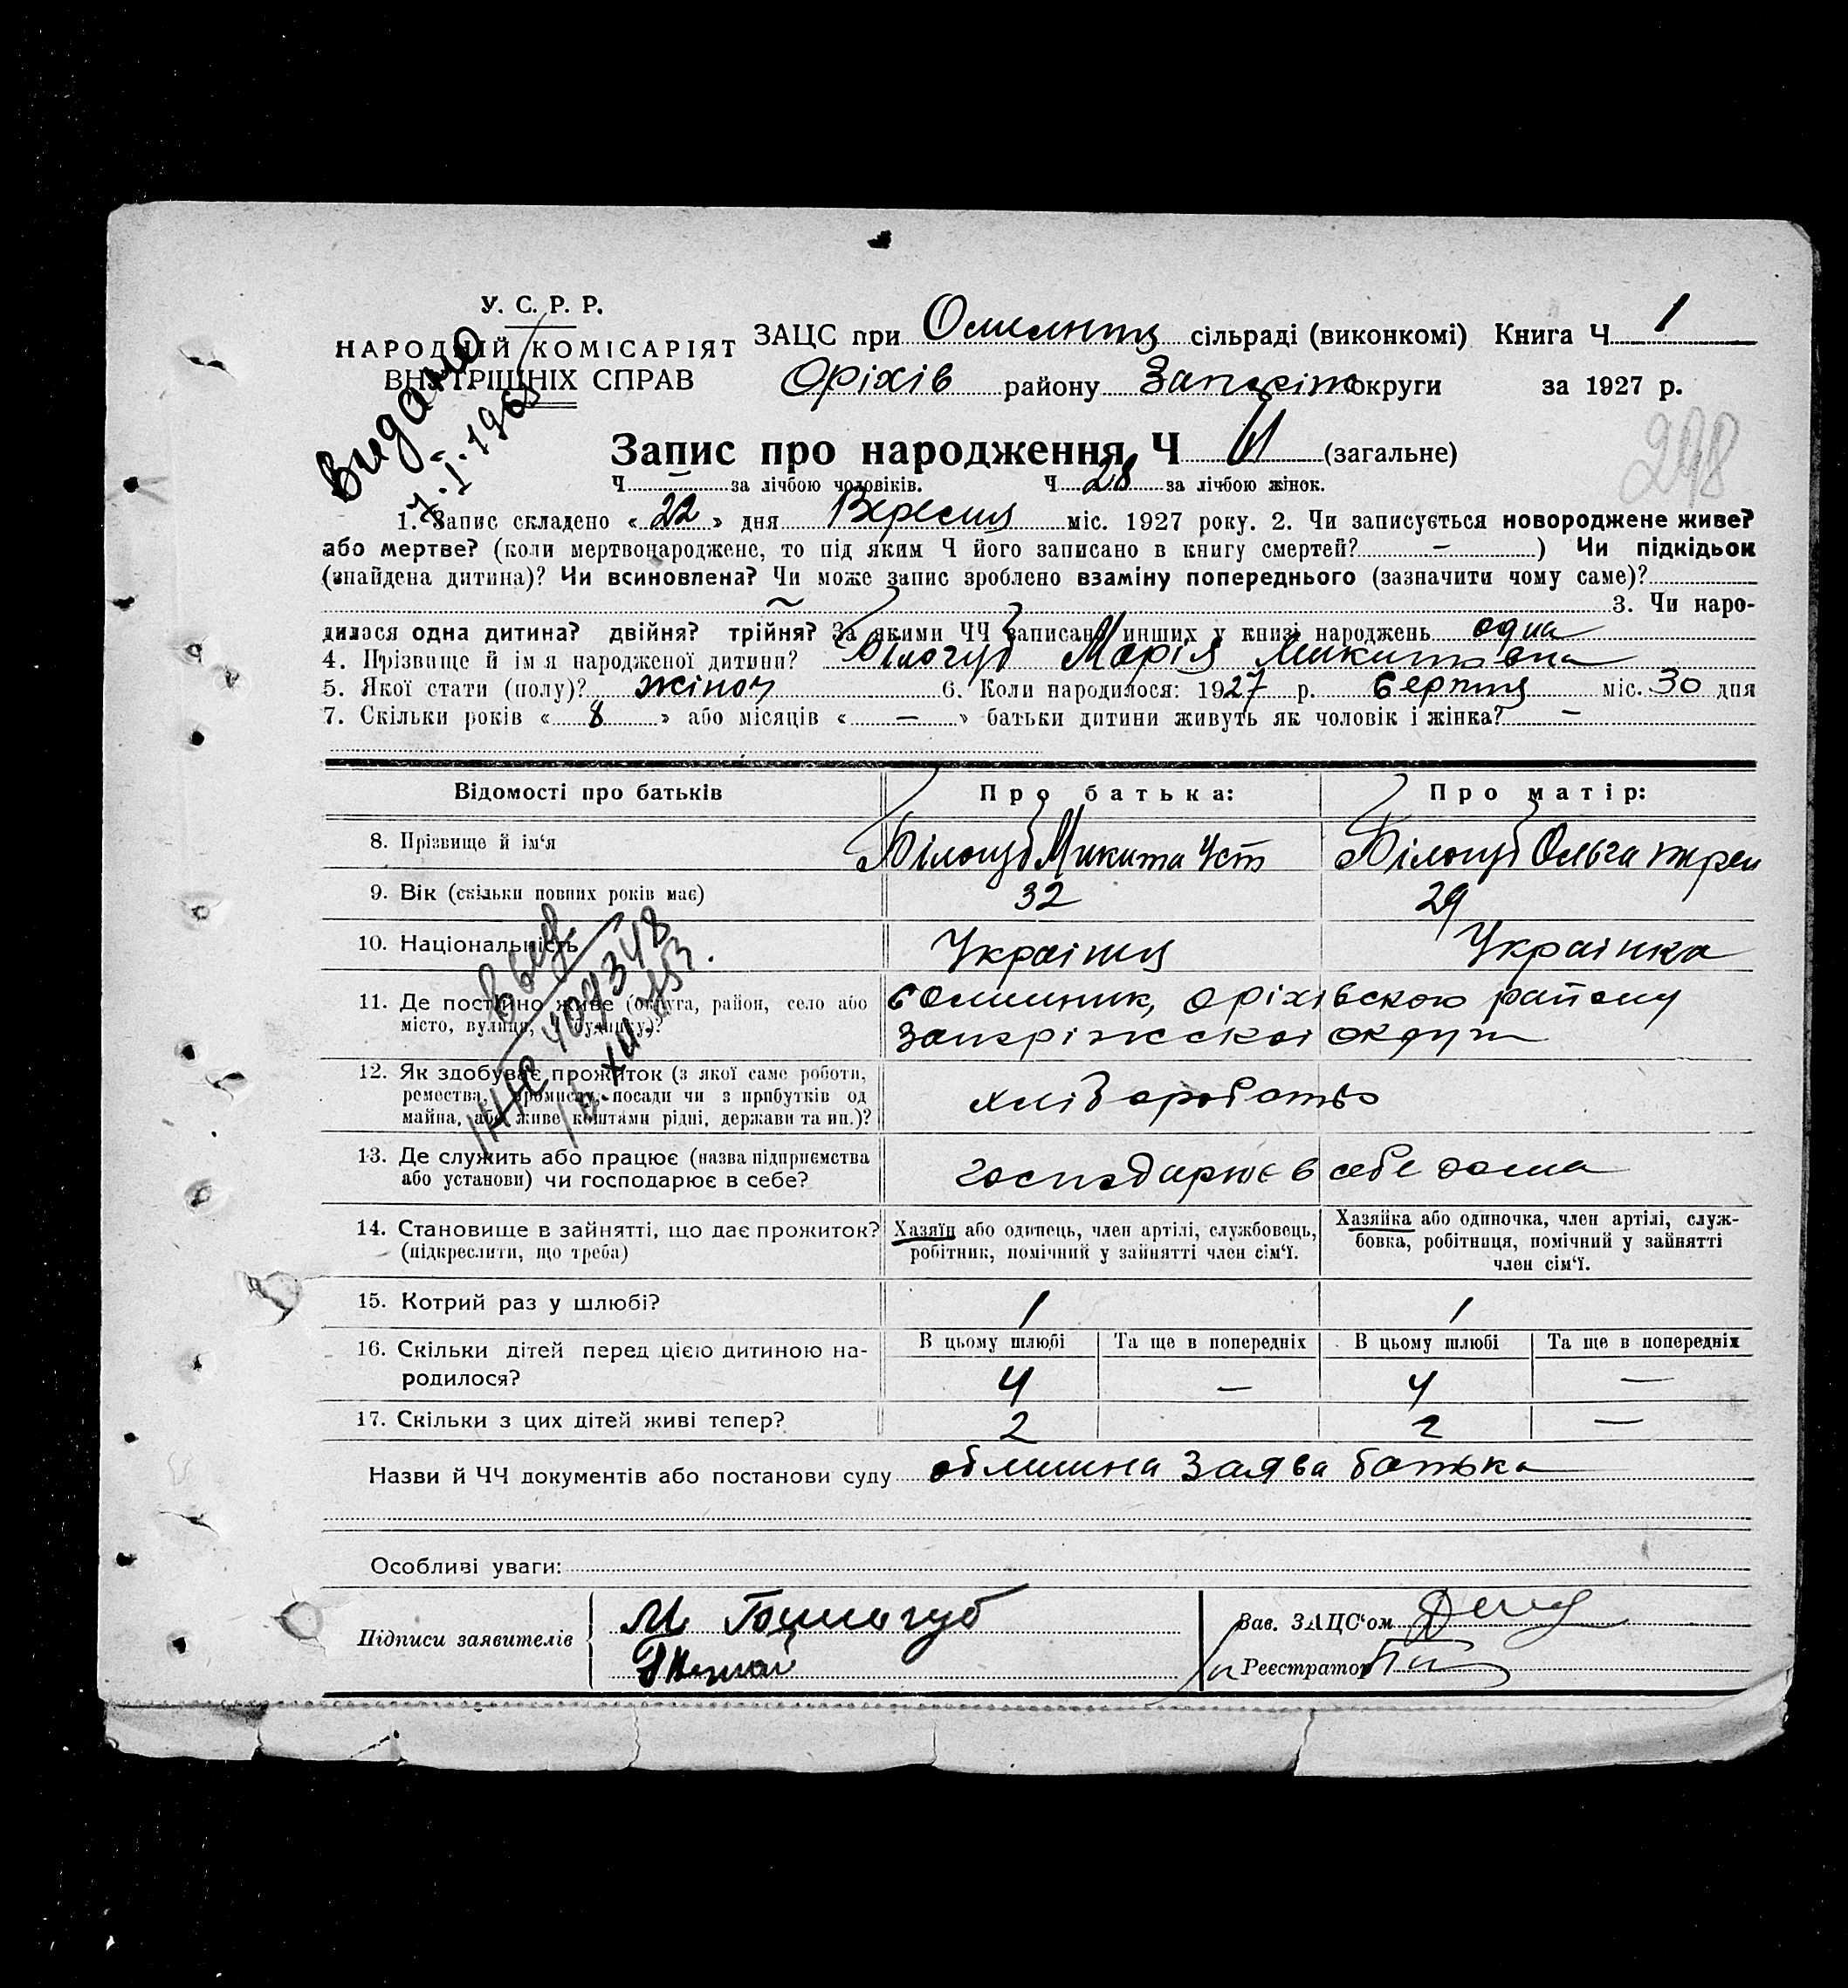 У. С. Р. Р.
НАРОДНІЙ КОМІСАРІЯТ
ВНУТРІШНІХ СПРАВ
Видано
ЗАЦС при сільраді (виконкомі) Книга Ч 1
Оріхів району округи за 1927 р.
Запис про народження Ч (загальне)
298
Ч — за лічбою чоловіків. Ч 28 за лічбою жінок.
1. Запис складено « 22 » дня Вересня міс. 1927 року. 2. Чи записується новороджене живе?
або мертве? (коли мертвонароджене, то під яким Ч його записано в книгу смертей? — ) Чи підкідьок
(знайдена дитина)? Чи всиновлена? Чи може запис зроблено взаміну попереднього (зазначити чому саме)?
3. Чи наро-
дилося одна дитина? двійня? трійня? За якими ЧЧ записано инших у книзі народжень одна
4. Прізвище й ім'я народженої дитини? Білогуб Марія Микитовна
5. Якої стати (полу)? жіноч 6. Коли народилося: 1927 р. Серпня міс. 30 дня
7. Скільки років « 8 » або місяців « — » батьки дитини живуть як чоловік і жінка? —
Відомості про батьків Про батька: Про матір:
8. Прізвище й ім'я Білогуб Микита Уст Білогуб Ольга
9. Вік (скільки повних років має) 32 29
10. Національність Українец Українка
11. Де постійно живе (округа, район, село або
місто, вулиця, Ч будинку)?
Оріхівскою району
округи
12. Як здобуває прожиток (з якої саме роботи,
ремества, промислу, посади чи з прибутків од
майна, або живе коштами рідні, держави та ин.)?
хліборобство
13. Де служить або працює (назва підприємства
або установи) чи господарює в себе?
господарює в себе дома
14. Становище в зайнятті, що дає прожиток?
(підкреслити, що треба)
Хазяїн або одинець, член артілі, службовець,
робітник, помічний у зайнятті член сім'ї.
Хазяйка або одиночка, член артілі, служ-
бовка, робітниця, помічний у зайнятті
член сім'ї.
15. Котрий раз у шлюбі? 1 1
16. Скільки дітей перед цією дитиною на-
родилося?
В цьому шлюбі Та ще в попередніх В цьому шлюбі Та ще в попередніх
4 — 4 —
17. Скільки з цих дітей живі тепер? 2 2 —
Назви й ЧЧ документів або постанови суду заява батька
Особливі уваги:
Підписи заявителів
Зав. ЗАЦС'ом
Реєстратор